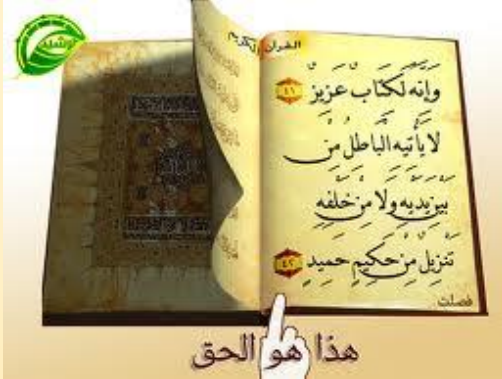 القرآن الكريم
وَإِنَّهُ لَكِتَابٌ عَزِيزٌ ٤١
لا يأتيه الباطل من
بين يديه ولا من خلفه
تنزيل من حكيم حميد ٤٢
فصلت
هذا هو الحق